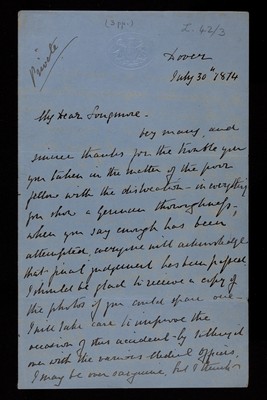 (3pp.)
L. 42/3
Private
Dover
July 30th 1874
My Dear Longmore.
Very many and
sincere thanks for the trouble you
have taken in the matter of the poor
fellow with the dislocation - in everything
you show a German thoroughness,
when you say enough has been
attempted everyone will acknowledge
that final judgement has been passed
I should be glad to receive a copy of
the photos if you could spare one -
I will take care to improve the
occasion of this accident - by talking it
over with the various Medical Officers,
I may be over sanguine, but I think